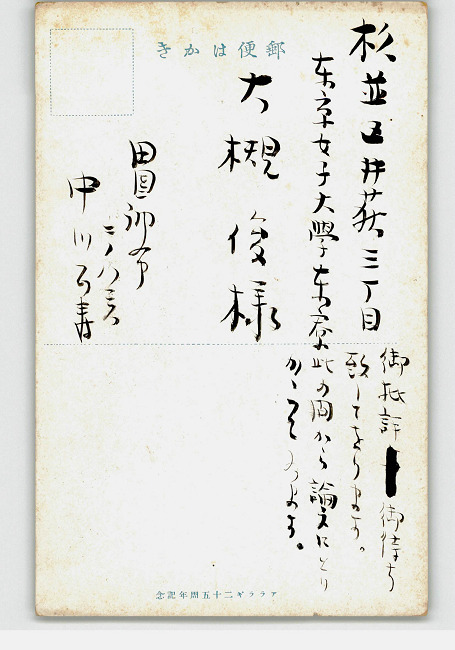 郵便はかき
杉並区井荻三丁目
東京女子大學東寮
大槻俊様
田園調布
中川
御批評御待ち
致してをります。
此の間から論文にとり
かゝつてゐます。
アララギ二十五周年記念